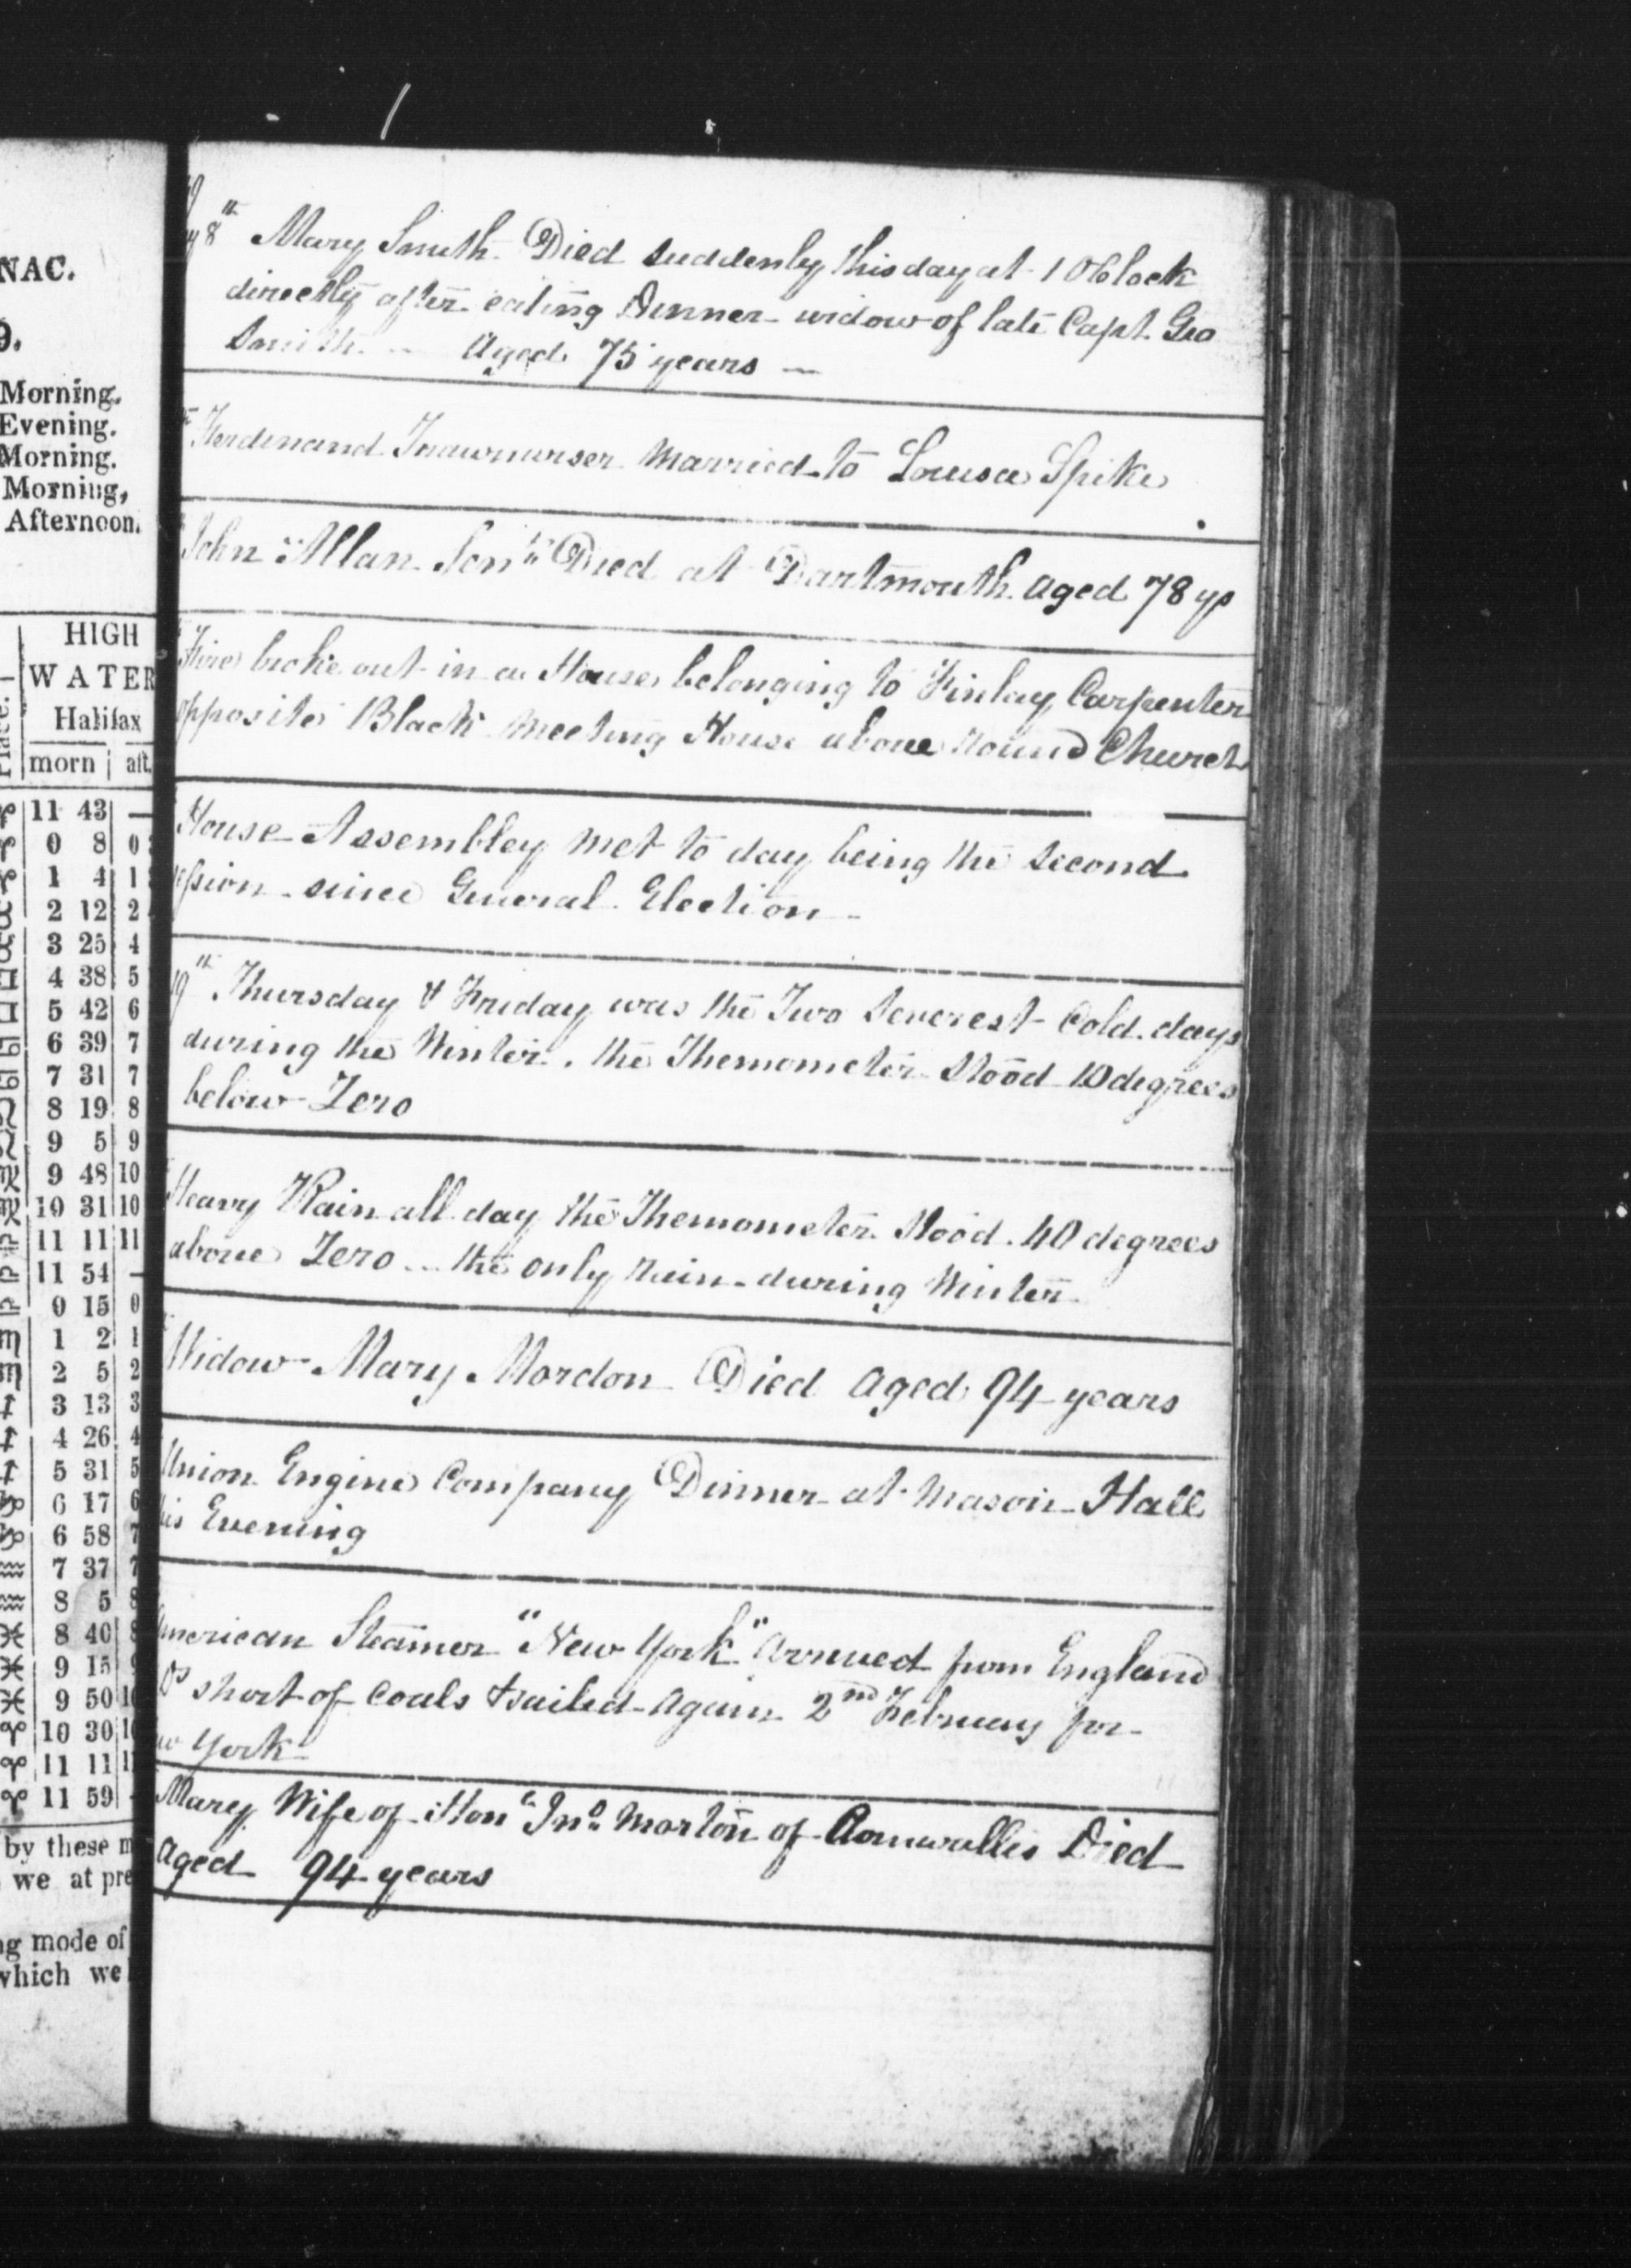 NAC.
9.
Morning.
Evening.
Morning.
Morning,
Afternoon.
HIGH
WATER
Halifax
morn | aft.
11 43 —
0 8 0
1 4 1
2 12 2
3 25 4
4 38 5
5 42 6
6 39 7
7 31 7
8 19 8
9 5 9
9 48 10
10 31 10
11 11 11
11 54 —
0 15 0
1 2 1
2 5 2
3 13 3
4 26 4
5 31 5
6 17 6
6 58 7
7 37 7
8 5 8
8 40 8
9 15 9
9 50 10
10 30 10
11 11 11
11 59 -
by these m
we at pre
ng mode of
which we
8th Mary Smith Died suddenly this day at 1 OClock
directly after eating Dinner - widow of late Capt. Geo
Smith - Aged 75 years —
Ferdinand married to Louisa Spike
John Allan Senr Died at Dartmouth aged 78 ys
Fire broke out in a House belonging to Finlay Carpenter
opposite Black meeting House above round Church
House Assembley met to day being the second
ssion since General Election -
19th Thursday & Friday was the Two Severest Cold days
during the Winter. the Themometer Stood 10 degrees
below Zero
Heavy Rain all day the Themometer Stood 40 degrees
above Zero -- the only rain during Winter
Widow Mary Mordon Died aged 94 years
Union Engine Company Dinner at mason Hall
his Evening
American Steamer "New York" arrived from England
short of Coals & sailed again 2nd February for
w York
Mary Wife of Honle Jno Morton of Cornwallis Died
aged 94 years